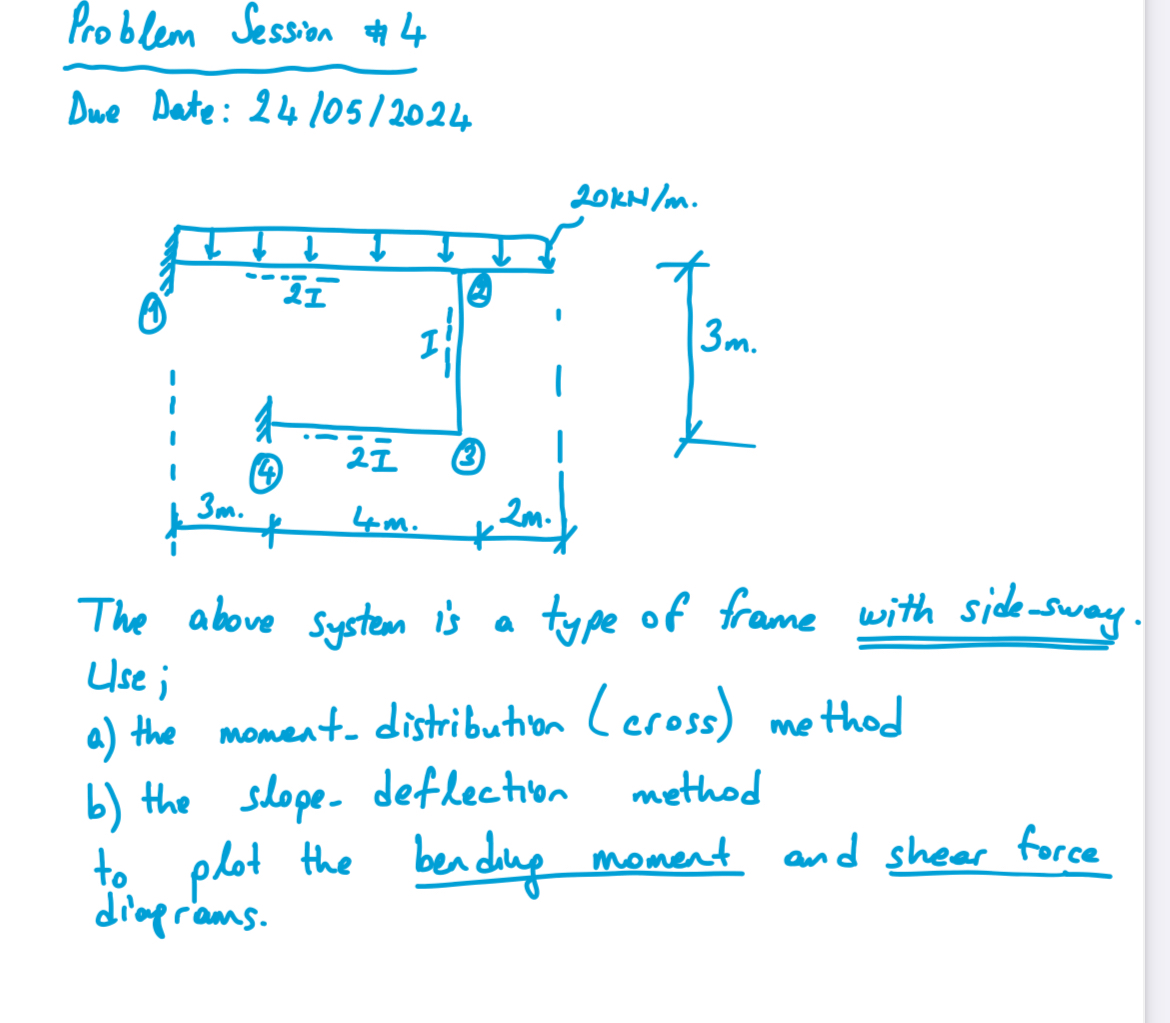 Problem Session #4
Due Date: 24/05/2024
20kN/m.
2I
①
②
I
3m.
④
2I
③
3m.
4m.
2m.
The above system is a type of frame with side-sway.
Use;
a) the moment-distribution (cross) method
b) the slope-deflection method
to plot the bending moment and shear force
diagrams.